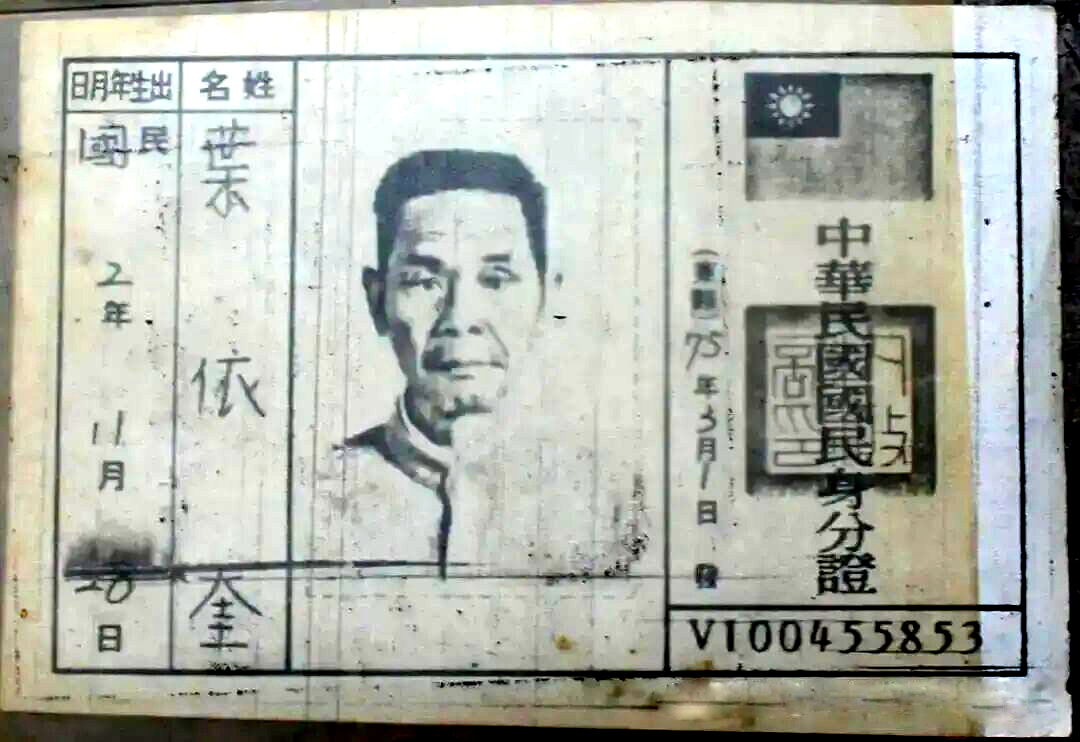 中華民國國民身分證
(東縣)75年3月1日發
V100455853
姓名
葉依奎
出生年月日
民國2年11月28日